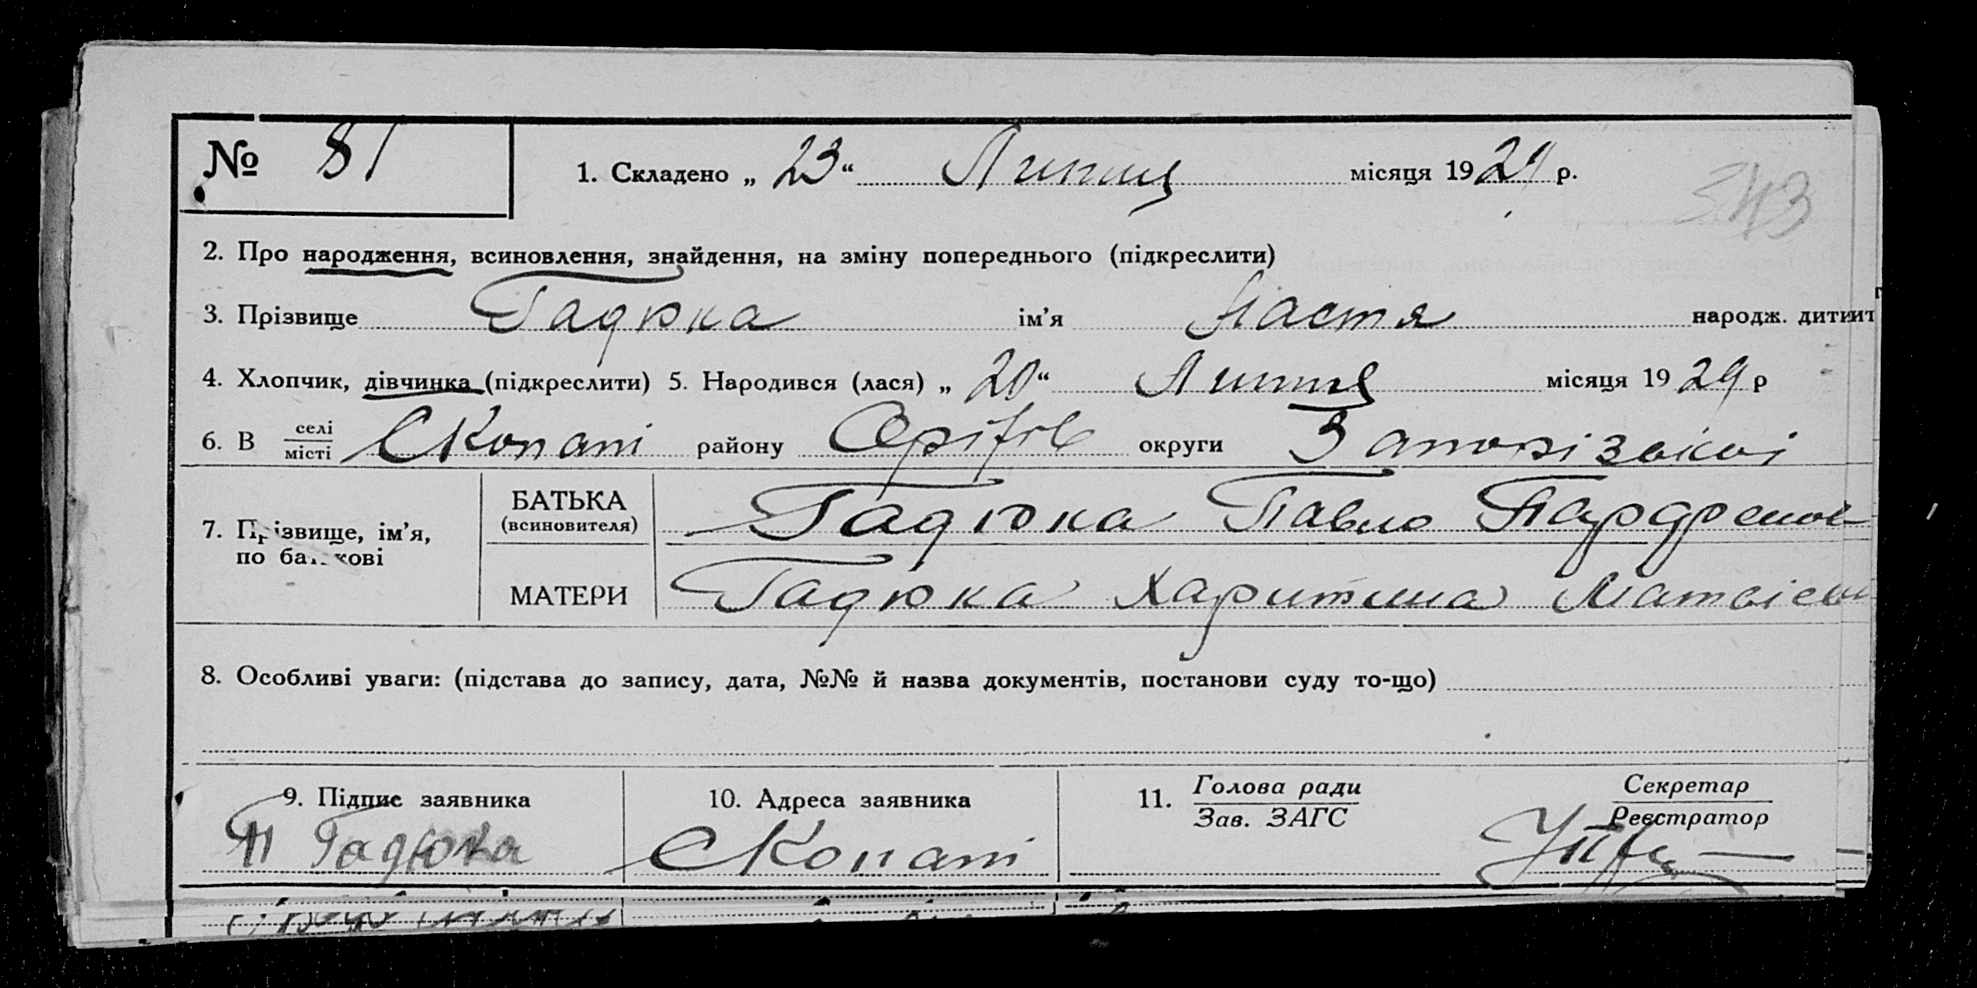 № 81
1. Складено „ 23 “ Липця місяця 1929 р.
343
2. Про народження, всиновлення, знайдення, на зміну попереднього (підкреслити)
3. Прізвище Гадюка ім’я Настя народж. дити
4. Хлопчик, дівчинка (підкреслити) 5. Народився (лася) „ 20 “ Липця місяця 1929 р
6. В селі/місті Скопані району Оріхів округи Запорізької
7. Прізвище, ім’я, по батькові
БАТЬКА (всиновителя) Гадюка Павло Парфенов
МАТЕРИ Гадюка Харитина Матвієв
8. Особливі уваги: (підстава до запису, дата, №№ й назва документів, постанови суду то-що)
9. Підпис заявника 10. Адреса заявника 11. Голова ради / Зав. ЗАГС Секретар / Реєстратор
П Гадюка Скопані